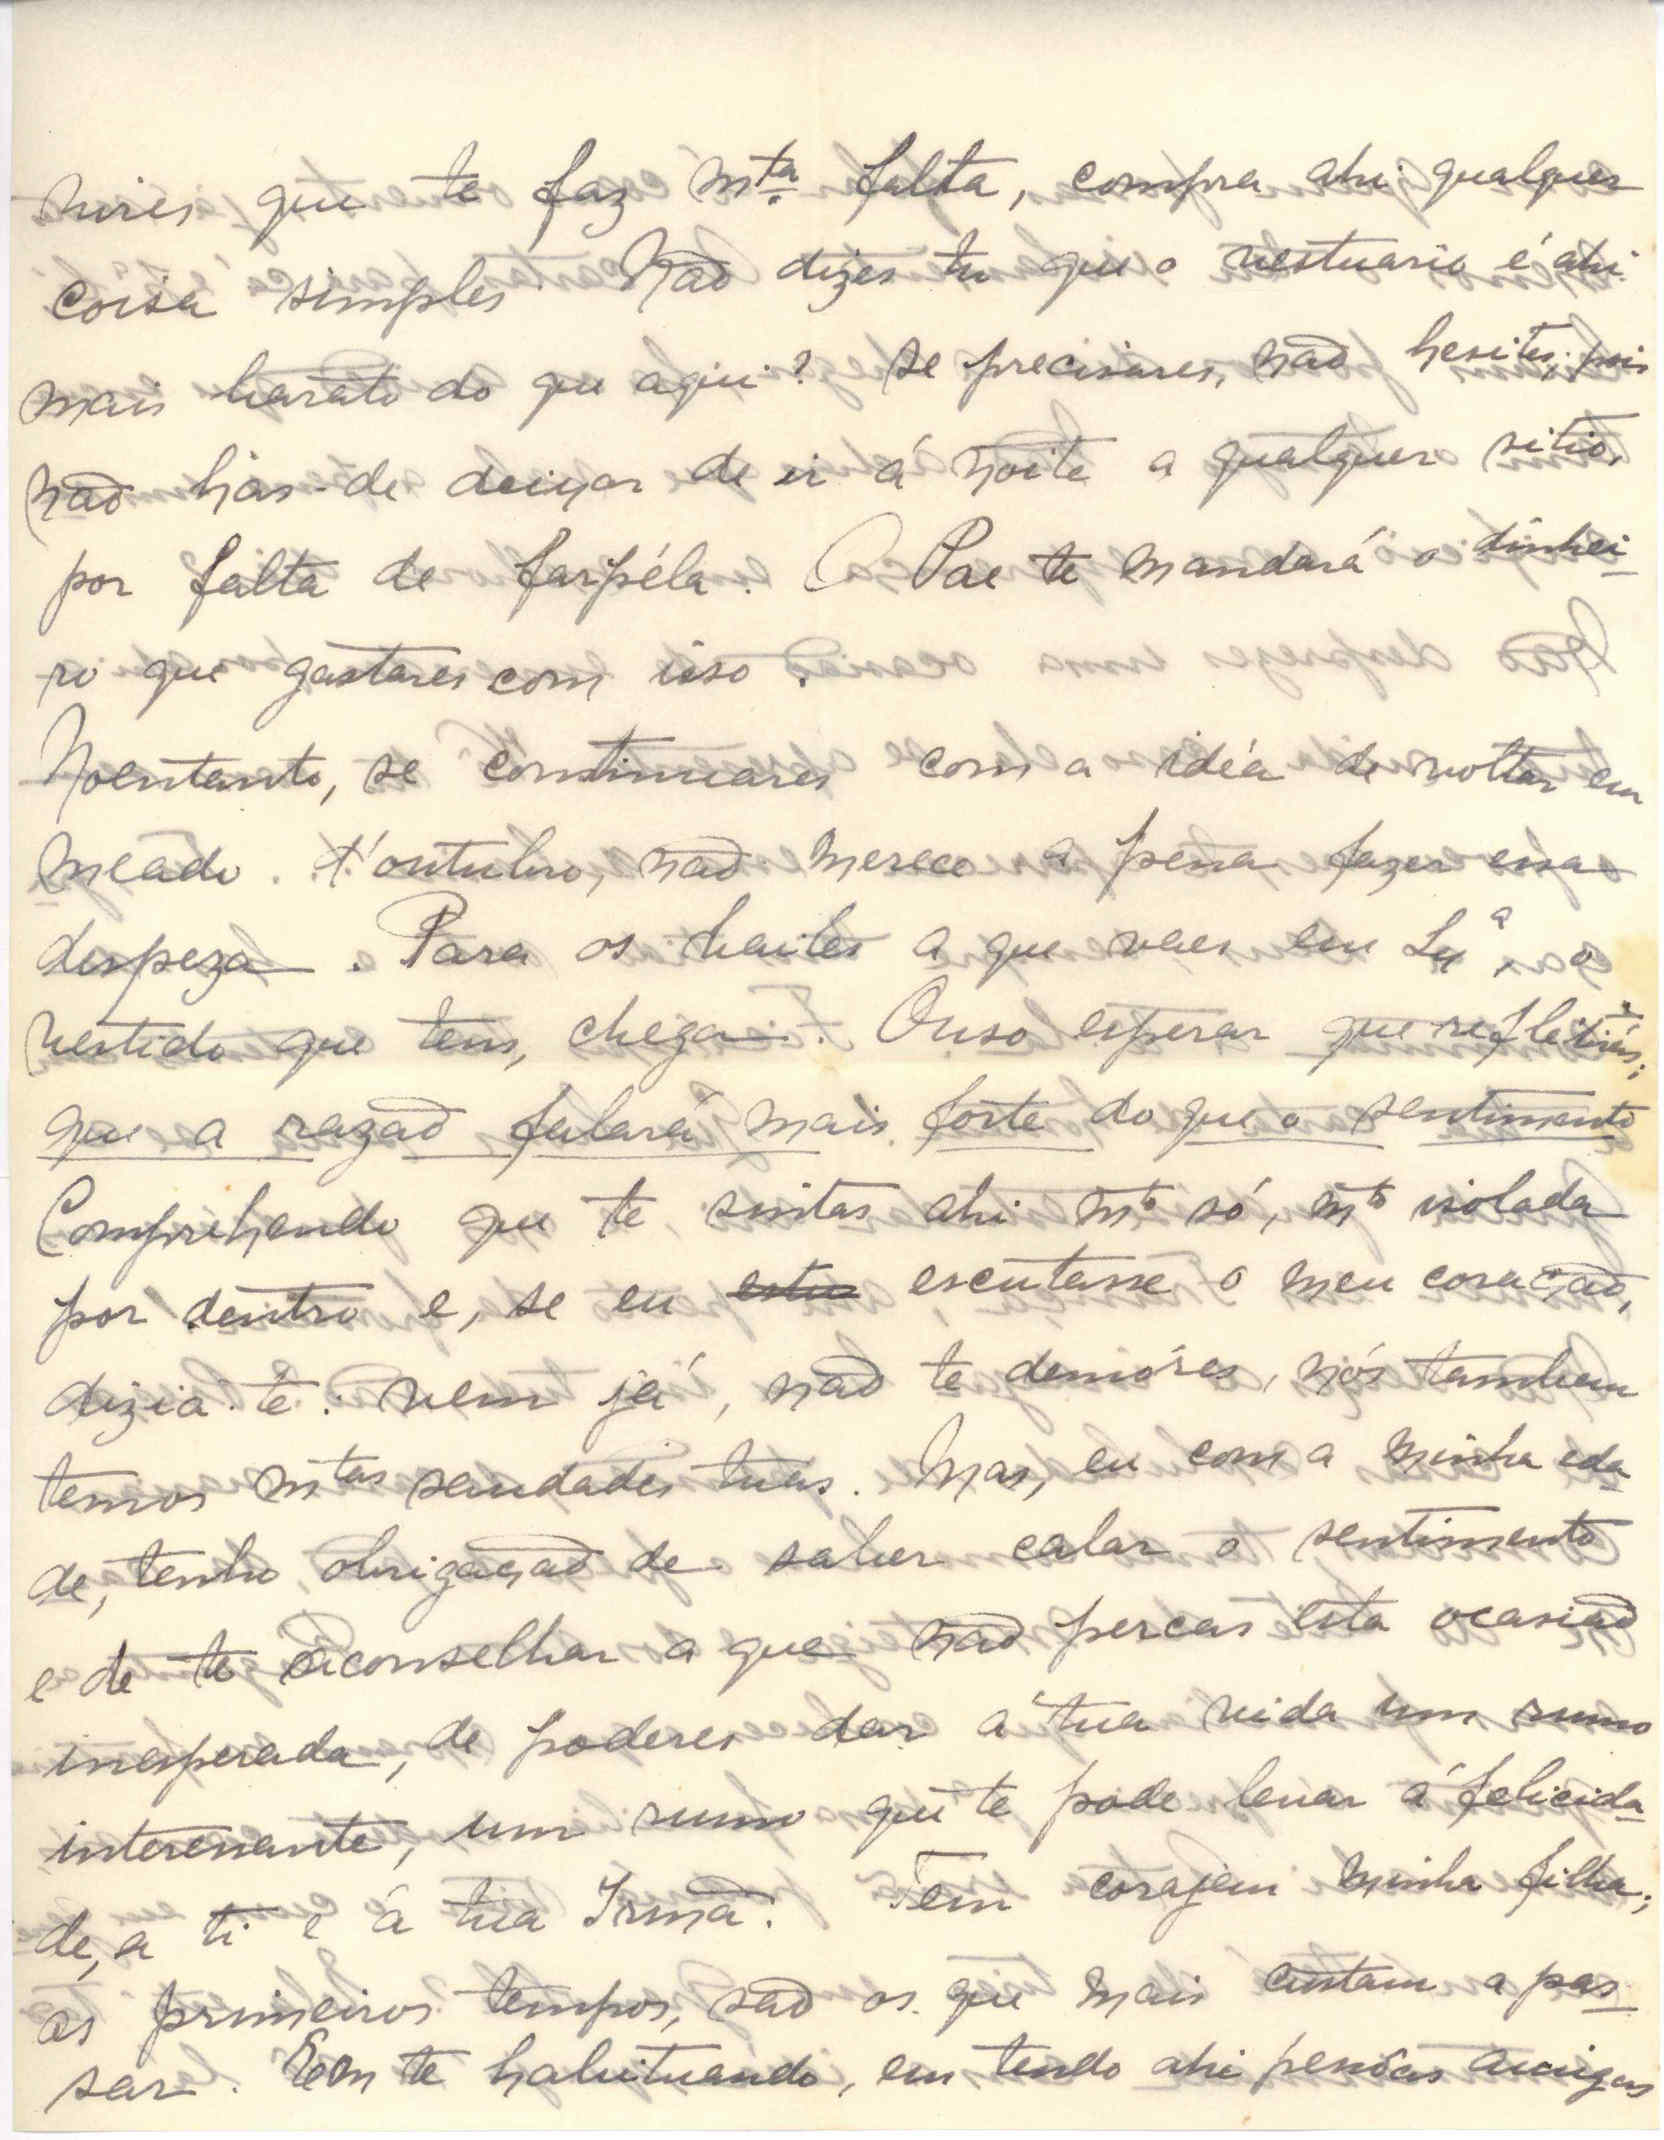 vires que te faz mta falta, compra ahi qualquer
coisa simples. Não dizes tu que o vestuario é ahi
mais barato do que aqui? Se precisares, não hesites, pois
não hás-de deixar de ir á noite a qualquer sitio,
por falta de farpéla. O Pae te mandará o dinhei-
ro que gastares com isso.
Noentanto, se continuares com a idéa de voltar em
meado d'outubro, não merece a pena fazer essa
despeza. Para os bailes a que vaes em Lxa, o
vestido que tens, chega. Ouso esperar que reflectirás;
que a razão falará mais forte do que o sentimento
Comprehendo que te sintas ahi mto só, mto isolada
por dentro e, se eu escutasse o meu coração,
dizia-te: vem já, não te demóres, nós tambem
temos mtas saudades tuas. Mas, eu com a minha eda-
de, tenho obrigação de saber calar o sentimento
e de te aconselhar a que não percas esta ocasião
inesperada, de poderes dar á tua vida um rumo
interessante, um rumo que te póde levar á felicida-
de, a ti e á tua Irmã. Tem coragem minha filha;
os primeiros tempos, são os que mais custam a pas-
sar. Em te habituando, em tendo ahi pessôas amigas